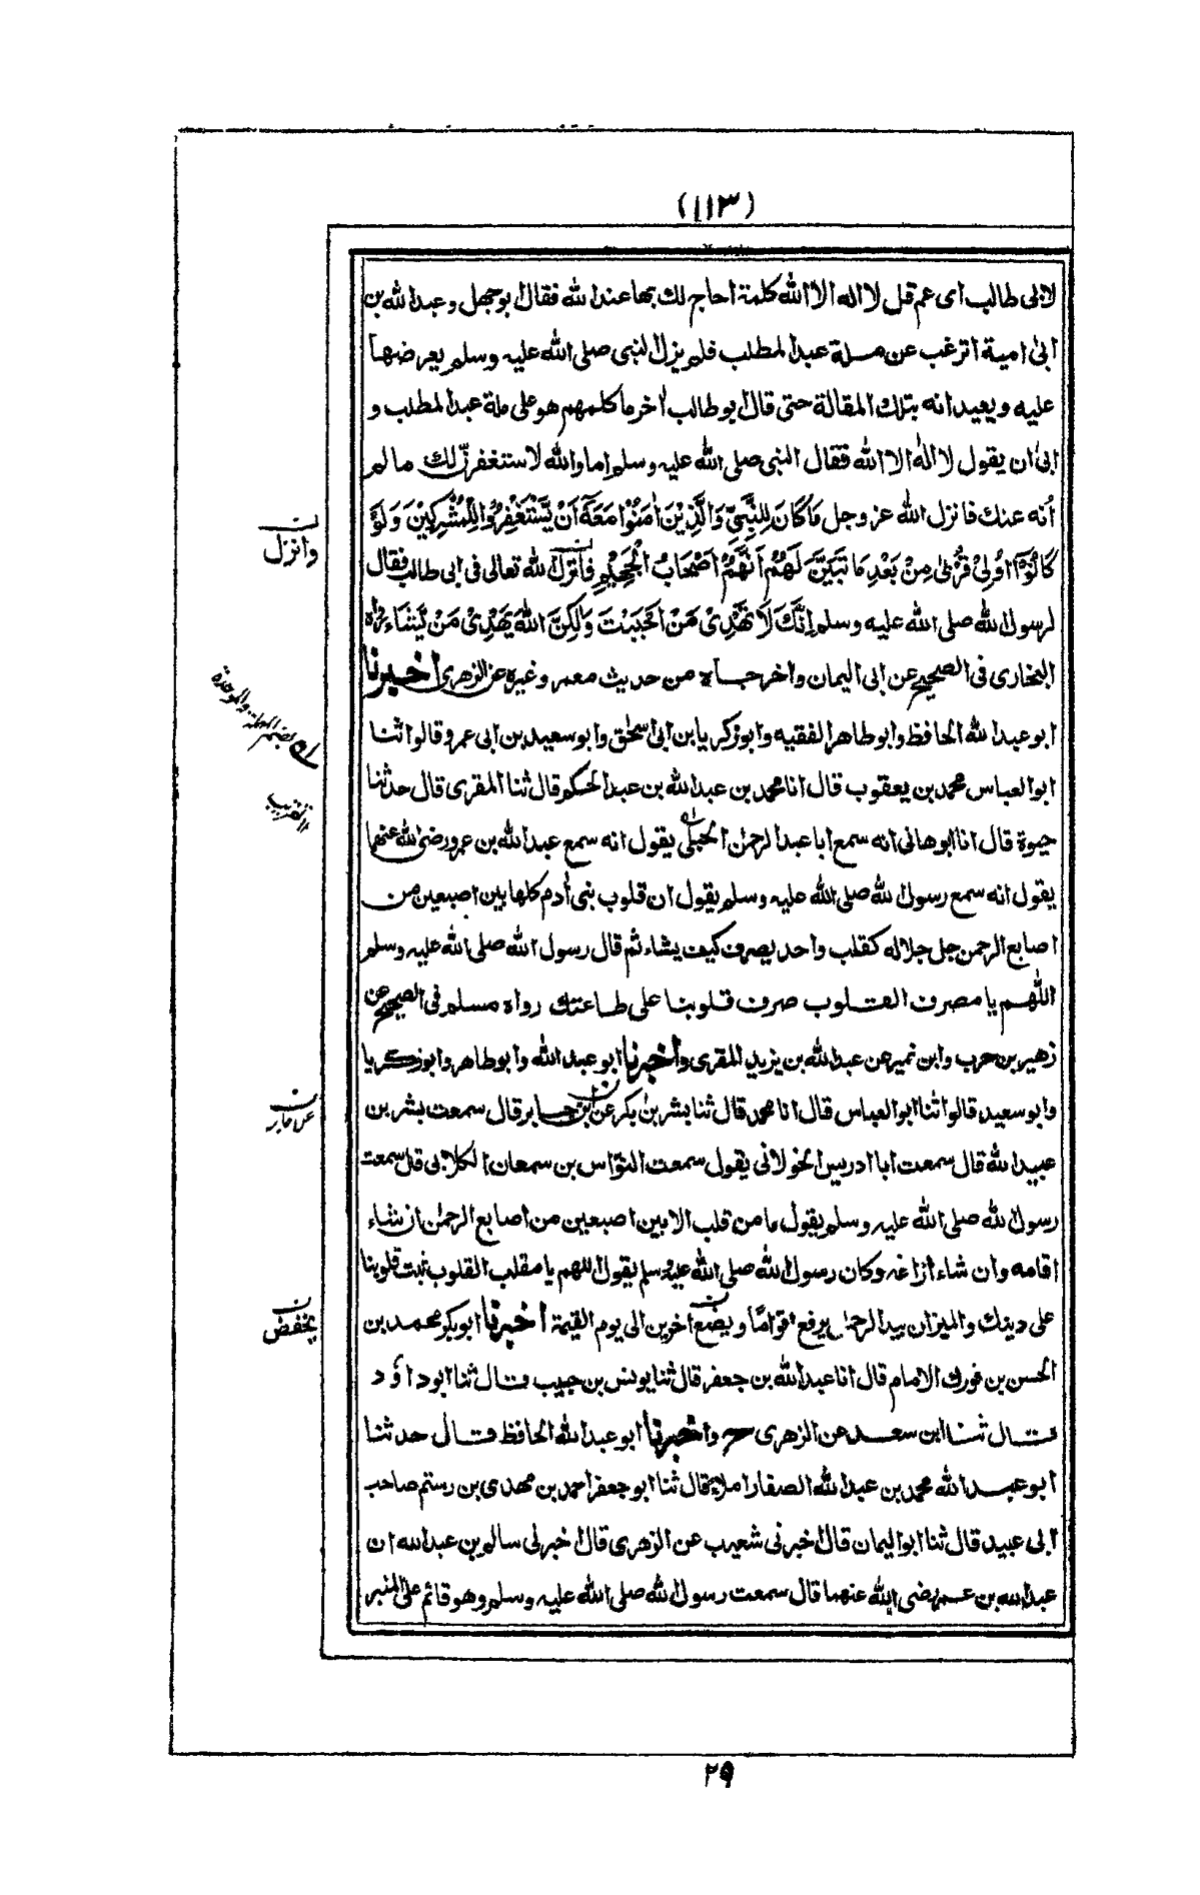 (١١٣)
لابى طالب اى عم قل لا اله الا الله كلمة احاج لك بها عند الله فقال ابو جهل وعبد الله بن
ابى امية اترغب عن ملة عبد المطلب فلم يزل النبى صلى الله عليه وسلم يعرضها
عليه ويعيد انه بتلك المقالة حتى قال ابو طالب اٰخر ما كلمهم هو على ملة عبد المطلب و
ابىٰ ان يقول لا الٰه الا الله فقال النبى صلى الله عليه وسلم اما والله لاستغفرنّ لك ما لم
اُنه عنك فانزل الله عز وجل مَا كَانَ لِلنَّبِيِّ وَالَّذِيْنَ اٰمَنُوْا مَعَهٗ اَنْ يَّسْتَغْفِرُوْا لِلْمُشْرِكِيْنَ وَلَوْ
كَانُوْٓا اُولِىْ قُرْبٰى مِنْ بَعْدِ مَا تَبَيَّنَ لَهُمْ اَنَّهُمْ اَصْحَابُ الْجَحِيْمِ فانزل الله تعالى فى ابى طالب فقال
لرسول الله صلى الله عليه وسلم اِنَّكَ لَا تَهْدِىْ مَنْ اَحْبَبْتَ وَلٰكِنَّ اللهَ يَهْدِىْ مَنْ يَّشَاءُ رواه
البخارى فى الصحيح عن ابى اليمان واخرجاه من حديث معمر وغيره عن الزهرى اخبرنا
ابو عبد الله الحافظ وابو طاهر الفقيه وابو زكريا بن ابى اسحٰق وابو سعيد بن ابى عمرو قالوا ثنا
ابو العباس محمد بن يعقوب قال انا محمد بن عبد الله بن عبد الحكم قال ثنا المقرى قال حدثنا
حيوة قال انا ابو هانى انه سمع ابا عبد الرحمٰن الحبلى يقول انه سمع عبد الله بن عمرو رضى الله عنهما
يقول انه سمع رسول الله صلى الله عليه وسلم يقول ان قلوب بنى اٰدم كلها بين اصبعين من
اصابع الرحمن جل جلاله كقلب واحد يصرف كيف يشاء ثم قال رسول الله صلى الله عليه وسلم
اللّٰهم يا مصرف القلوب صرف قلوبنا على طاعتك رواه مسلم فى الصحيح عن
زهير بن حرب وابن نمير عن عبد الله بن يزيد المقرى واخبرنا ابو عبد الله وابو طاهر وابو زكريا
وابو سعيد قالوا ثنا ابو العباس قال انا محمد قال ثنا بشر بن بكر عن ابن جابر قال سمعت بشر بن
عبيد الله قال سمعت ابا ادريس الخولانى يقول سمعت النوّاس بن سمعان الكلابى قال سمعت
رسول الله صلى الله عليه وسلم يقول ما من قلب الا بين اصبعين من اصابع الرحمٰن ان شاء
اقامه وان شاء ازاغه وكان رسول الله صلى الله عليه وسلم يقول اللهم يا مقلب القلوب ثبت قلوبنا
على دينك والميزان بيد الرحمٰن يرفع اقوامًا ويضع اٰخرين الى يوم القيٰمة اخبرنا ابو بكر محمد بن
الحسن بن فورك الامام قال انا عبد الله بن جعفر قال ثنا يونس بن حبيب قال ثنا ابو داؤد
قال ثنا ابن سعد عن الزهرى ح واخبرنا ابو عبد الله الحافظ قال حدثنا
ابو عبد الله محمد بن عبد الله الصفار املاء قال ثنا ابو جعفر احمد بن مهدى بن رستم صاحب
ابى عبيد قال ثنا ابو اليمان قال اخبرنى شعيب عن الزهرى قال اخبرنى سالم بن عبد الله ان
عبد الله بن عمر رضى الله عنهما قال سمعت رسول الله صلى الله عليه وسلم وهو قائم على المنبر
ن
وانزل
بضم المهملة والموحدة
التقريب
ن
عن جابر
ن
يخفض
٢٩